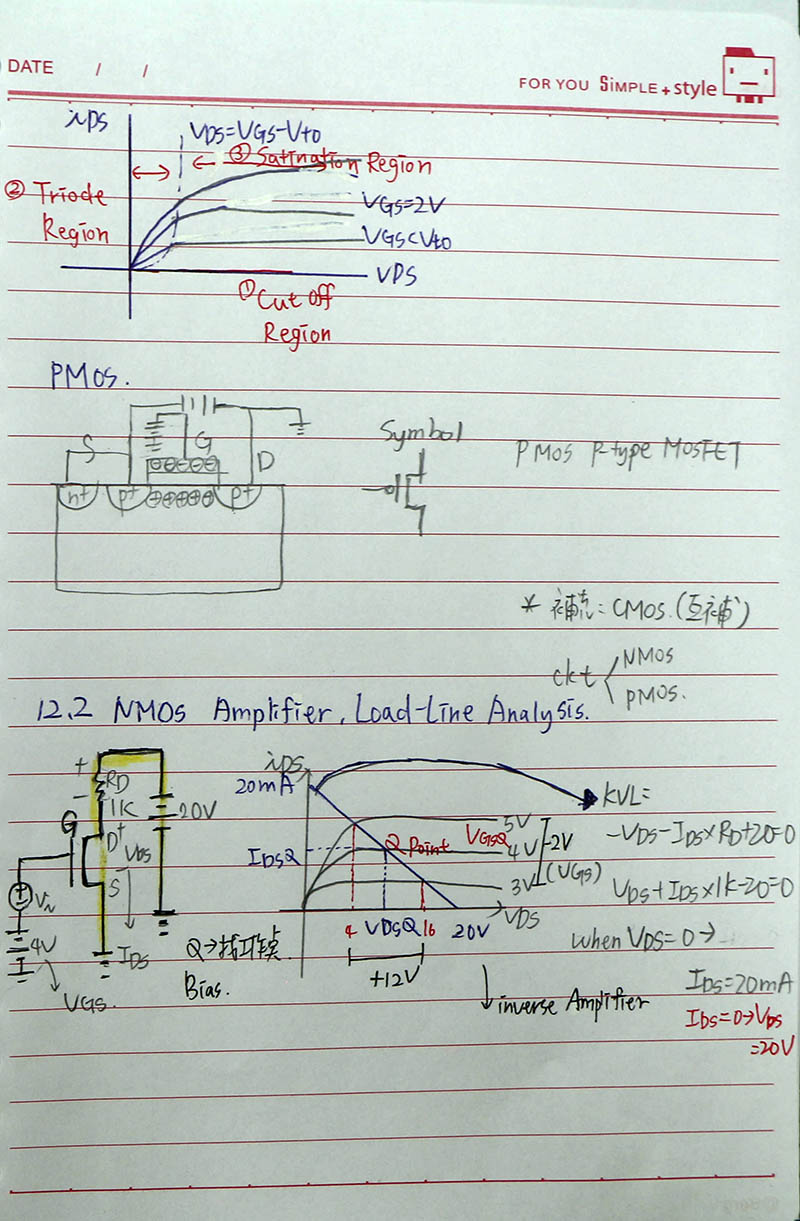 DATE / /
FOR YOU SiMPLE + style
iDS
VDS=VGS-Vto
③ Satination Region
② Triode
Region
VGS=2V
VGS<Vto
VDS
① Cut off
Region
PMOS.
S
G
D
n+
p+
⊕⊕⊕⊕⊕
p+
Symbol
PMOS P-type MOSFET
* 補充: CMOS.(互補)
ckt
NMOS
PMOS.
12.2 NMOS Amplifier, Load-Line Analysis.
+
RD
-
1K
20V
G
D+
VDS
S
Vin
4V
VGS.
IDS
Q→找工作点
Bias.
iDS
20mA
IDSQ
Q Point
VGSQ
5V
4V
3V
-2V
(VGS)
4
VDSQ
16
20V
VDS
+12V
inverse Amplifier
KVL=
-VDS-IDS×RD+20=0
VDS+IDS×1K-20=0
when VDS=0→
IDS=20mA
IDS=0→VDS
=20V